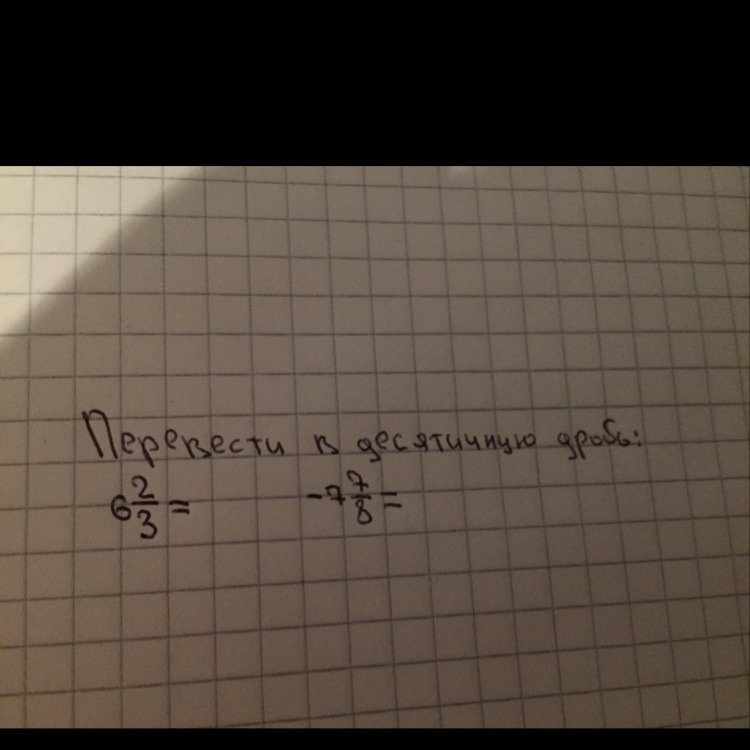 Перевести в десятичную дробь:
6 2/3 = -7 7/8 =